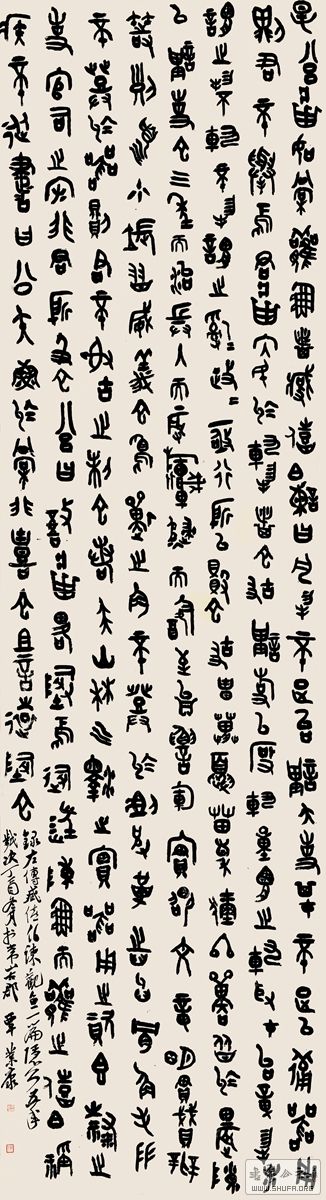 春公將如棠觀魚者臧僖伯諫曰凡物不足以講大事其材不足以備器用
則君不舉焉君將納民於軌物者也故講事以度軌量謂之軌取材以章物采
謂之物不軌不物謂之亂政亂政亟行所以敗也故春蒐夏苗秋獮冬狩皆於農隙
以講事也三年而治兵入而振旅歸而飲至以數軍實昭文章明貴賤辨
等列順少長習威儀也鳥獸之肉不登於俎皮革齒牙骨角毛羽
不登於器則公不射古之制也若夫山林川澤之實器用之資皂隸之
事官司之守非君所及也公曰吾將略地焉遂往陳魚而觀之僖伯稱
疾不從書曰公矢魚於棠非禮也且言遠地也
錄左傳臧僖伯諫觀魚一篇隱公五年
歲次丁酉
WWW.SHUFA.ORG